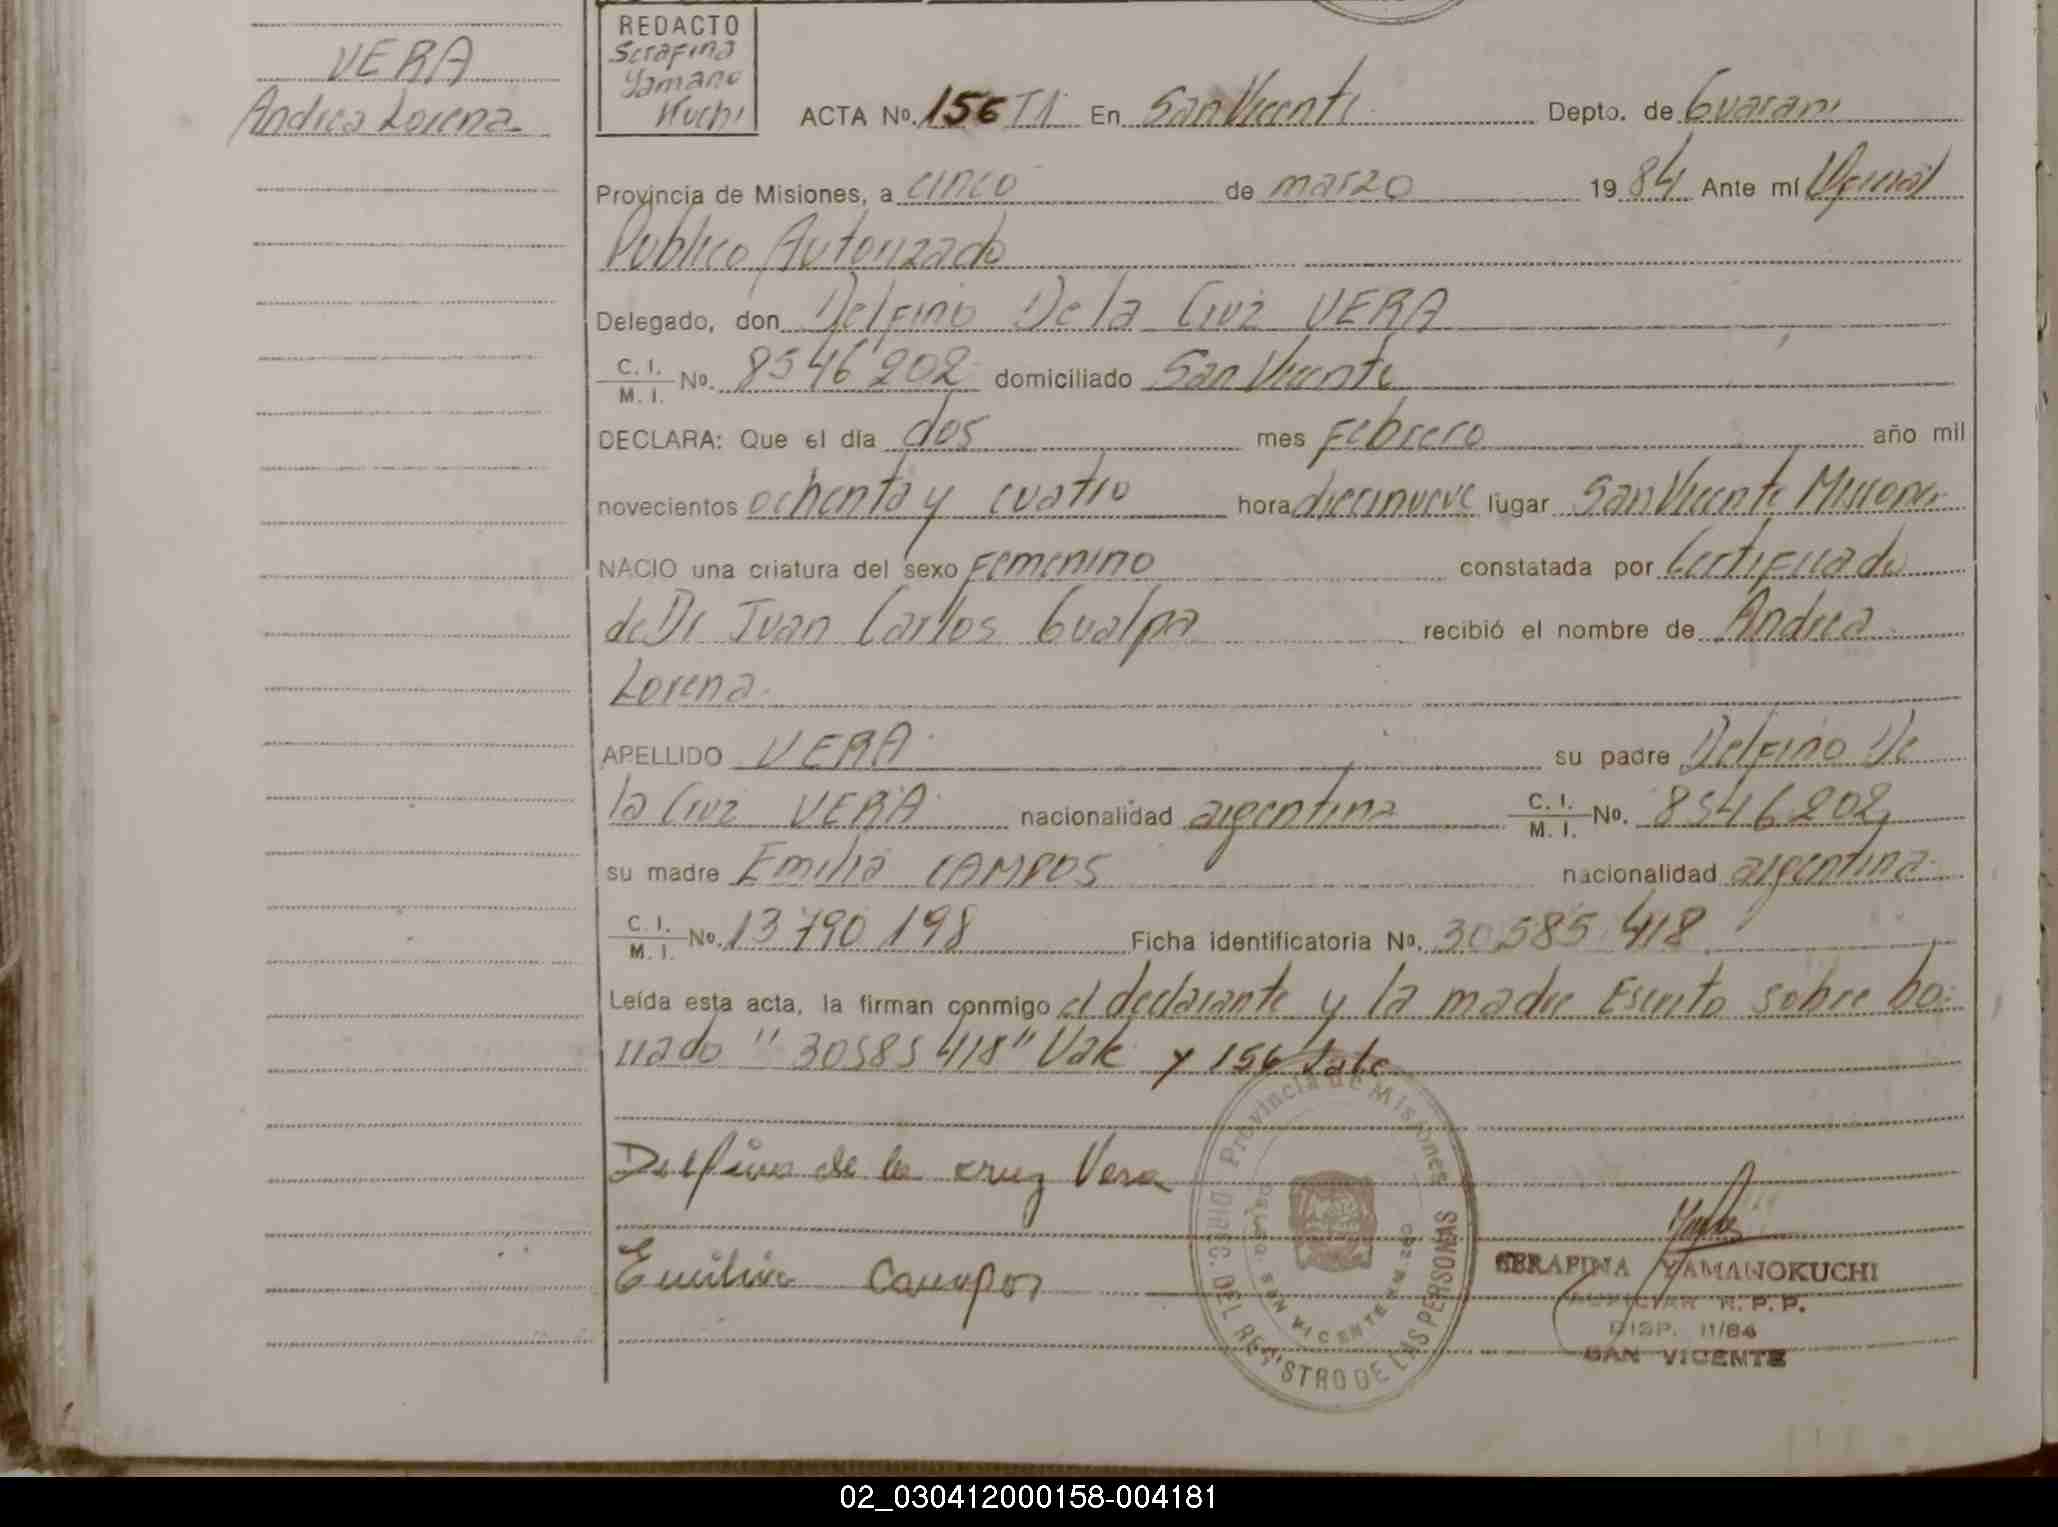 VERA
Andrea Lorena
REDACTO
Serafina
Yamano
Kuchi
ACTA No. 156 T1 En San Vicente Depto. de Guarani
Provincia de Misiones, a cinco de marzo 19 84 Ante mí Oficial
Publico Autorizado
Delegado, don Delfino De la Cruz VERA
C. I. M. I. No. 8546202 domiciliado San Vicente
DECLARA: Que el día dos mes Febrero año mil
novecientos ochenta y cuatro hora diecinueve lugar San Vicente Misiones
NACIO una criatura del sexo Femenino constatada por Certificado
de Dr Juan Carlos Gualpa recibió el nombre de Andrea
Lorena
APELLIDO VERA su padre Delfino De
la Cruz VERA nacionalidad argentina C. I. M. I. No. 8546202
su madre Emilia CAMPOS nacionalidad argentina
C. I. M. I. No. 13790198 Ficha identificatoria No. 30585418
Leída esta acta, la firman conmigo el declarante y la madre Escrito sobre bo-
rrado "30585418" Vale y 156 Vale
Delfino de la cruz Vera
Emilia Campos
Provincia de Misiones
DIREC. DEL REGISTRO DE LAS PERSONAS
SAN VICENTE
SERAFINA YAMANOKUCHI
AUXILIAR R. P. P.
DISP. 11/84
SAN VICENTE
02_030412000158-004181